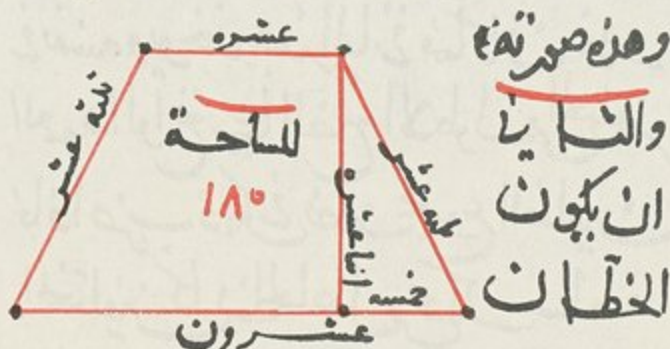 وهذه صورته
والثاني
ان يكون
الخطان
عشره
ثلثه عشر
المساحة
١٨٠
ثلثه عشر
اثنا عشره
خمسه
عشرون